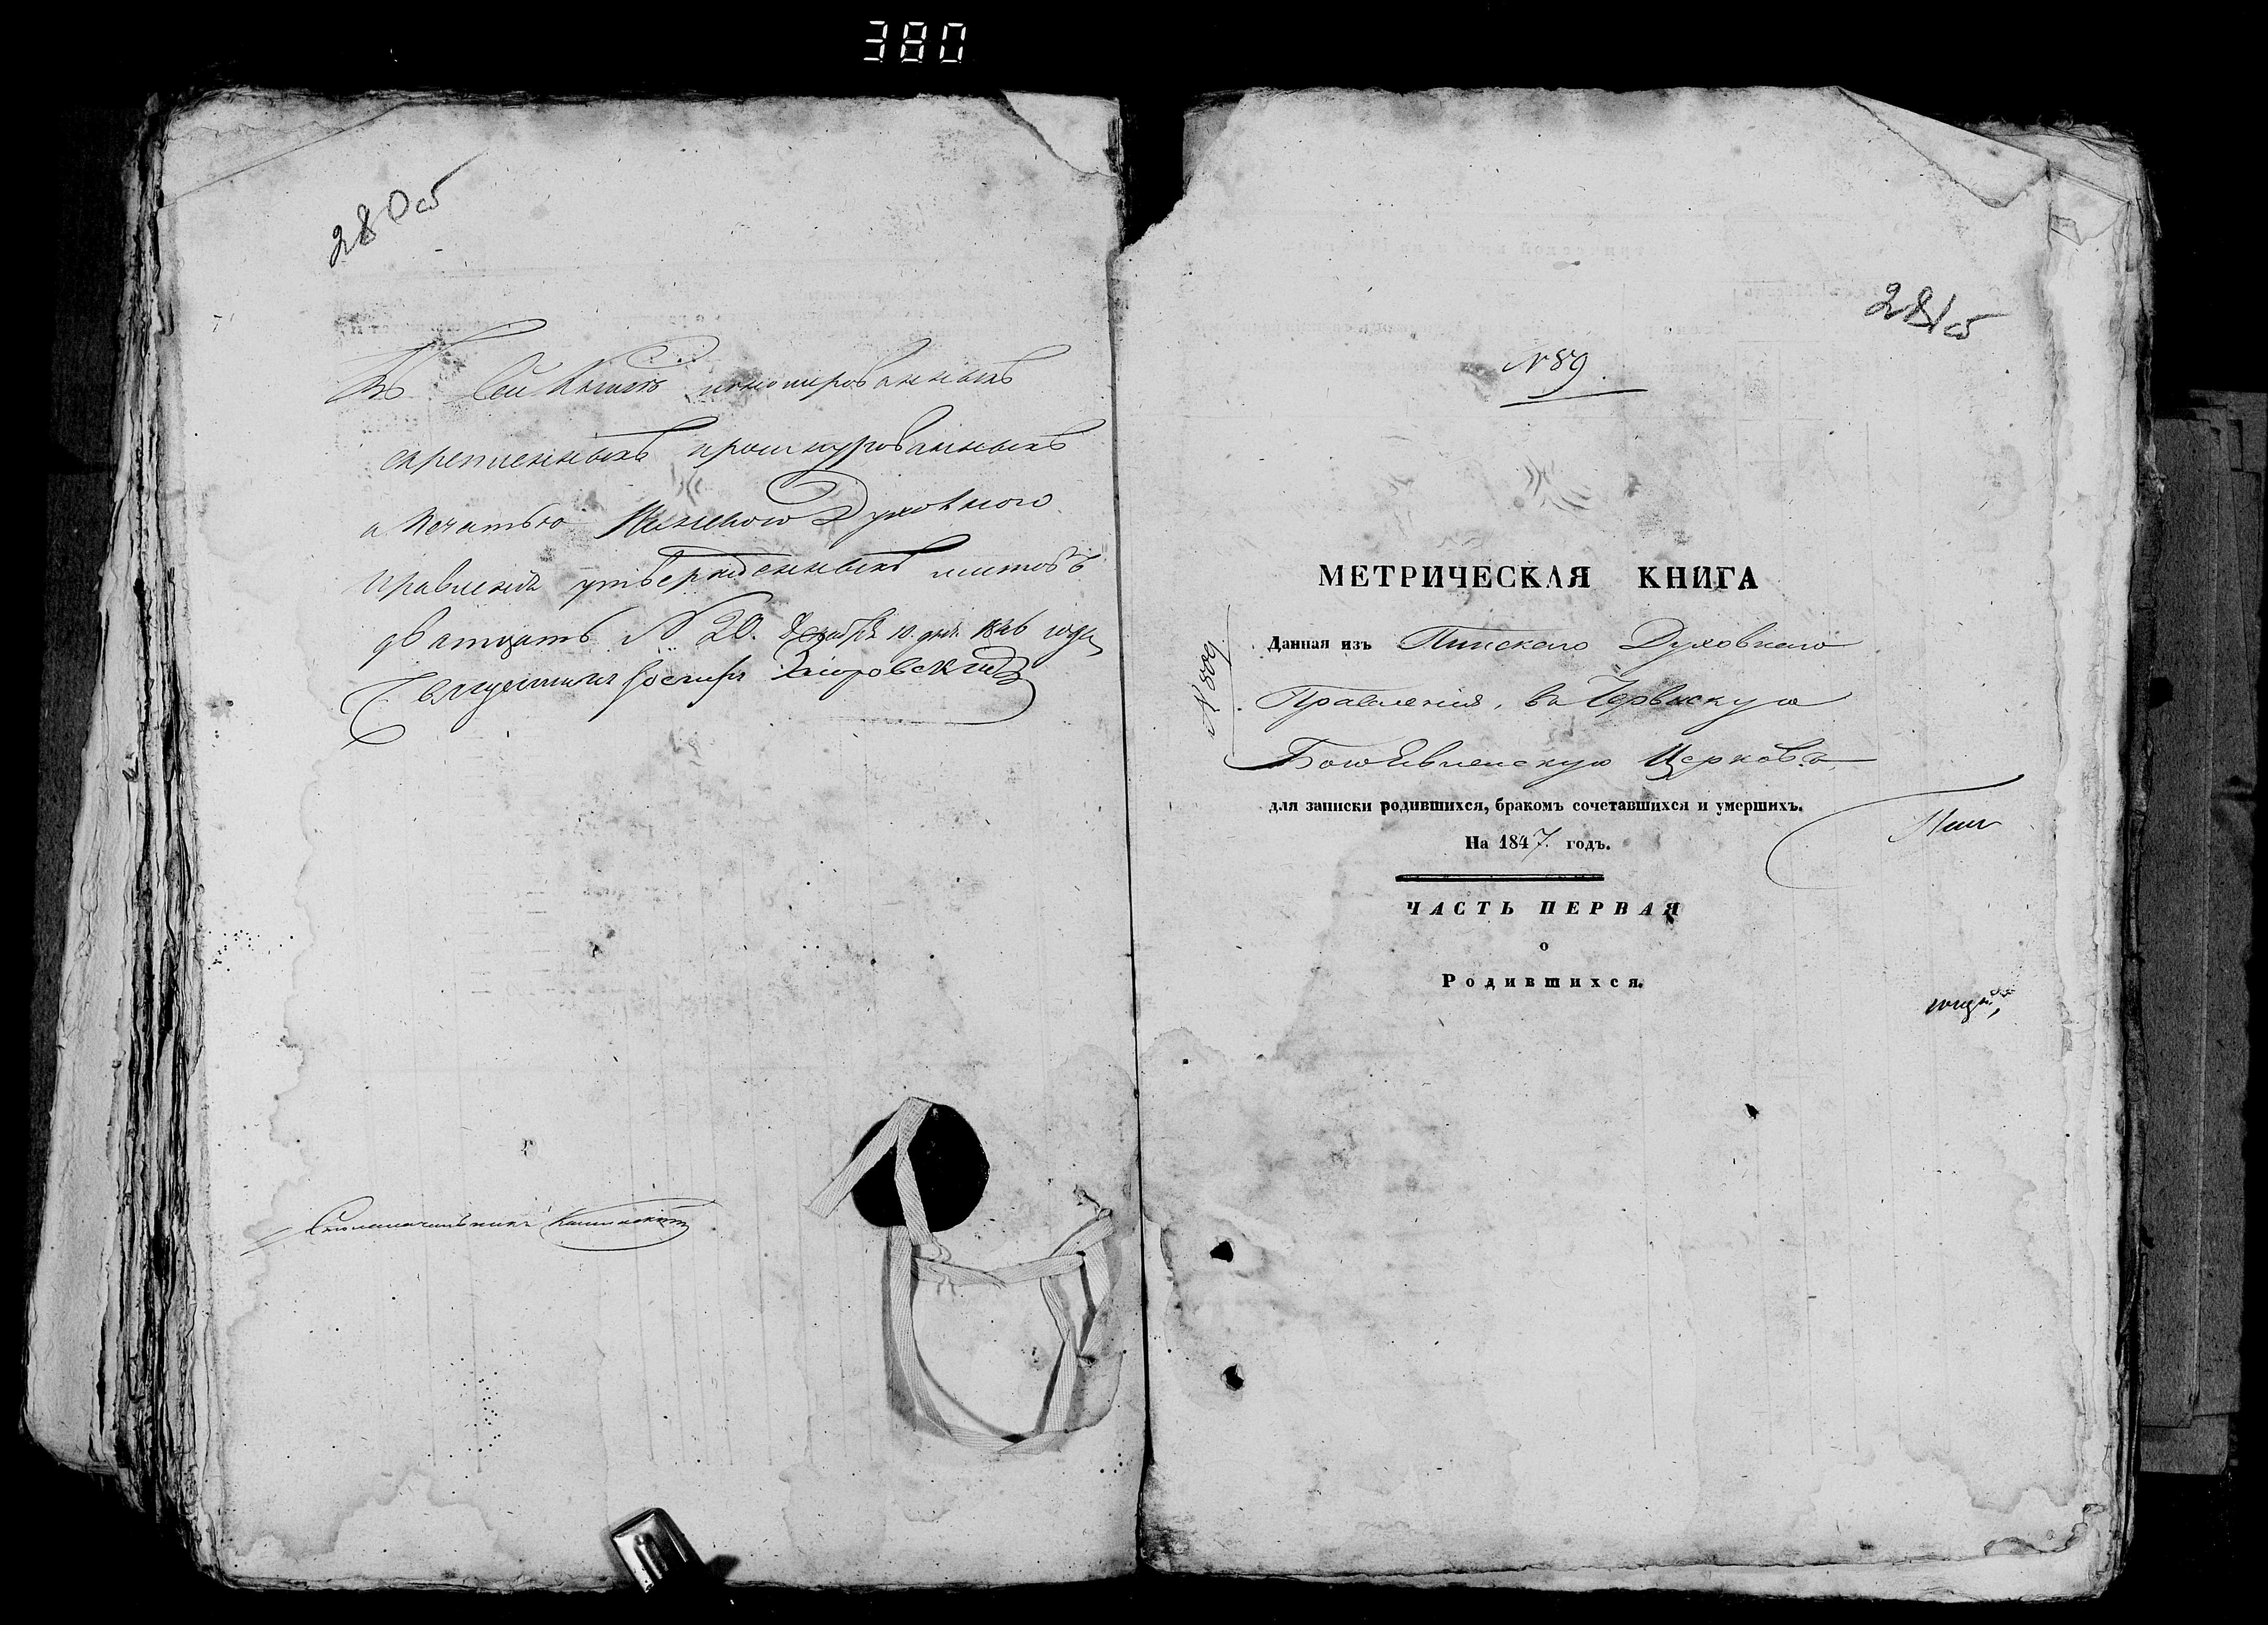 380
280об
Въ сей книгѣ нумерованныхъ
скрепленныхъ прошнурованныхъ
а печатью Пинского Духовного
Правленія утвержденныхъ листовъ
дватцать № 20. Декабря 10. дня 1846 года
Священникъ Іосифъ
Столоначальникъ
281об
№ 89.
МЕТРИЧЕСКАЯ КНИГА
№ 809
Данная изъ Пинскаго Духовнаго
Правленія, въ
Богоявленскую Церковь
для записки родившихся, бракомъ сочетавшихся и умершихъ.
На 1847. годъ.
ЧАСТЬ ПЕРВАЯ
о
Родившихся.